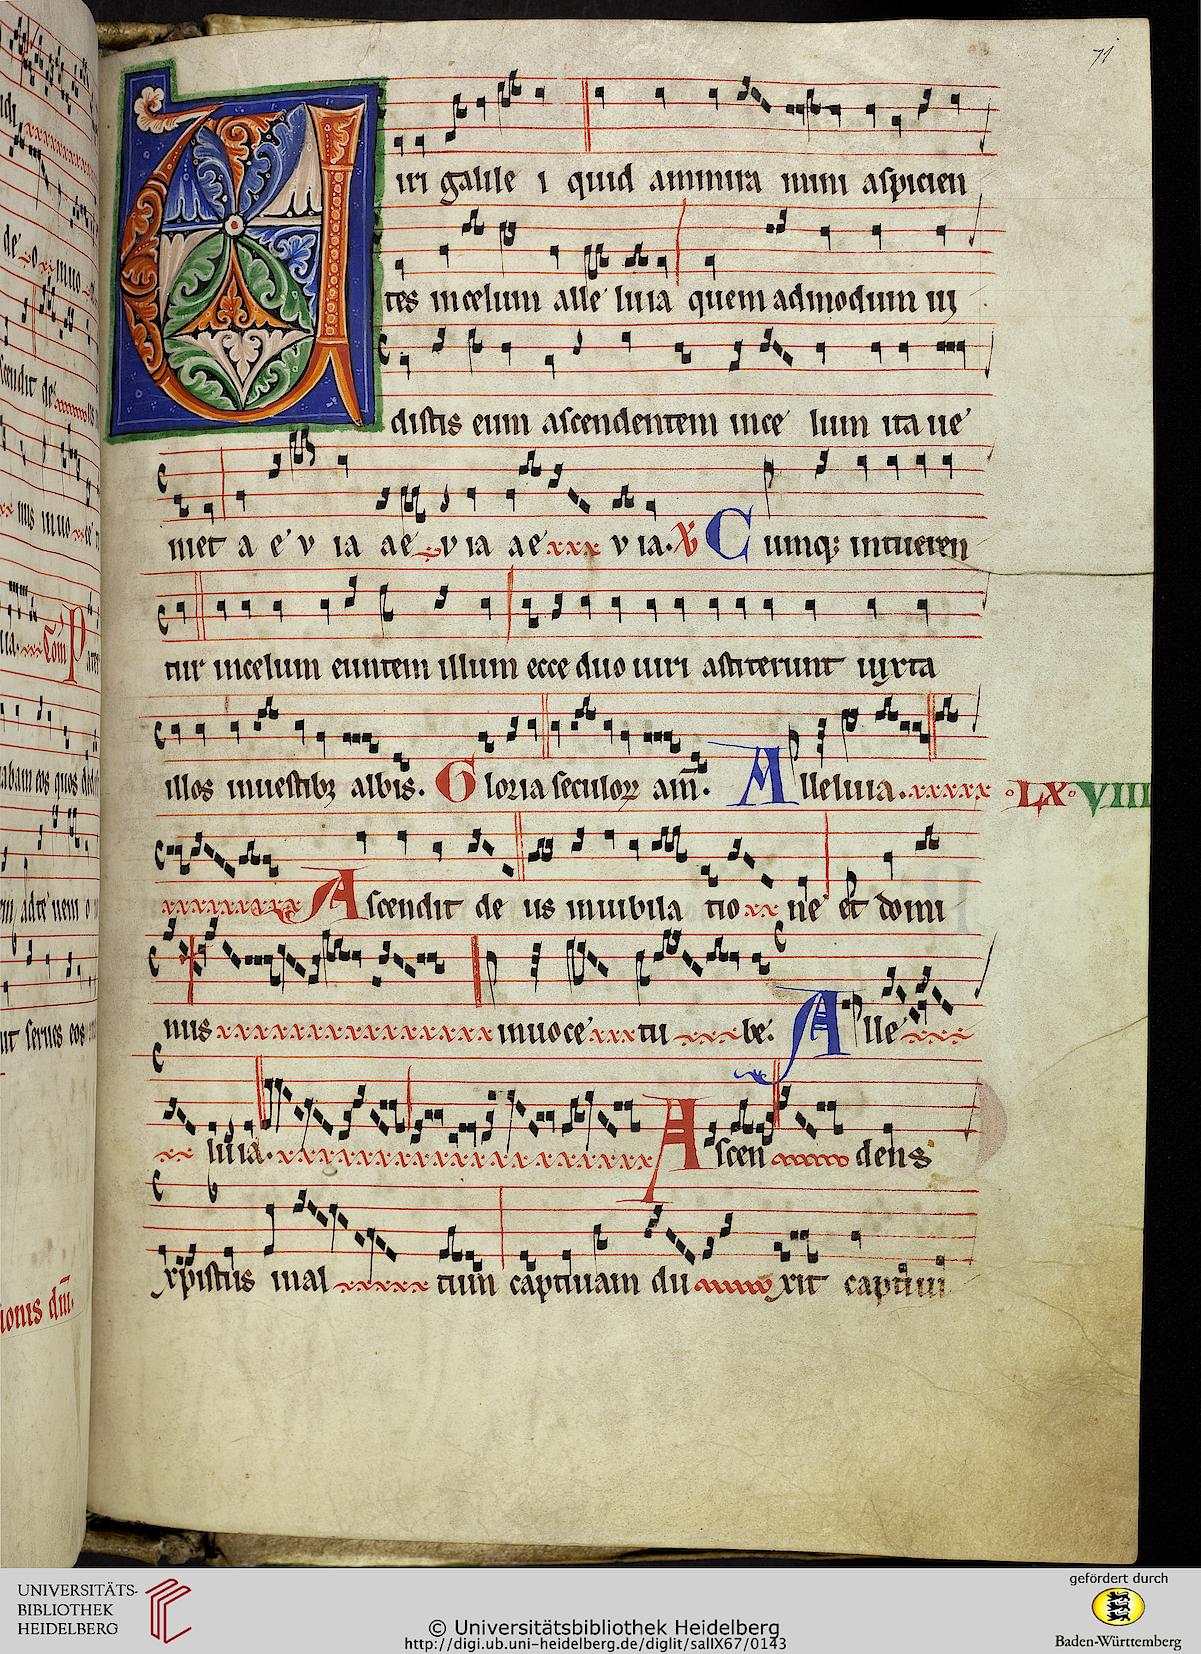 71
Viri galile i quid ammira mini aspicien
tes incelum alle luia quem admodum ui
distis eum ascendentem ince lum ita ue
niet a e v ia ae v ia ae v ia. Cumq; intueren
tur incelum euntem illum ecce duo uiri astiterunt iuxta
illos inuestibȝ albis. Gloria seculoꝝ am̄. Alleluia.
LX VIII
Ascendit de us iniubila tio ne et domi
nus inuoce tu be. Alle
luia. Ascen dens
xpistus inal tum captiuam du xit captiui
UNIVERSITÄTS-
BIBLIOTHEK
HEIDELBERG
© Universitätsbibliothek Heidelberg
http://digi.ub.uni-heidelberg.de/diglit/salIX67/0143
gefördert durch
Baden-Württemberg